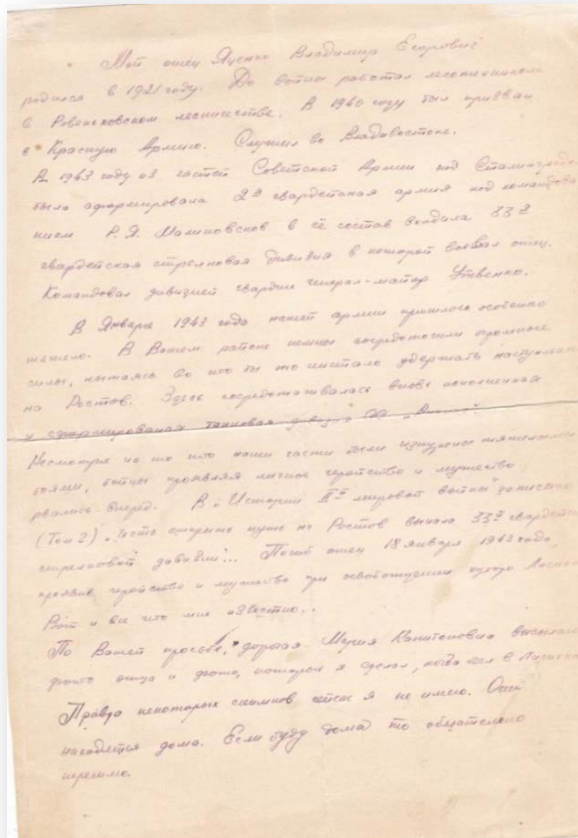 Мой отец Яценко Владимир Егорович
родился в 1921 году. До войны работал
в Ровеньковском лесничестве. В 1940 году был призван
в Красную Армию. Служил во Владивостоке.
В 1943 году из частей Советской Армии под Сталинградом
была сформирована 2я гвардейская армия под командова
нием Р.Я. Малиновсков в её состав входила 33я
гвардейская стрелковая дивизия в которой воевал отец.
Командовал дивизией гвардии генерал-майор Утвенко.
В Январе 1943 года нашей армии пришлось особенно
тяжело. В Вашем районе немцы сосредоточили огромные
силы, пытаясь во что бы то нистало удержать
на Ростов. Здесь сосредотачивалась вновь
и сформированая танковая дивизия СС
Несмотря на то что наши части были
боями, бойцы проявляя личное геройство и мужество
рвались вперед. В "Истории IIой мировой войны" записано
(Том 2) "честь открыть путь на Ростов выпала 33й гвардейс
стрелковой дивизии"... Погиб отец 18 января 1943 года,
проявив геройство и мужество при освобождении хутора
Вот и все что мне известно..
По Вашей просьбе, дорогая Мария высылаю
фото отца и фото, которые я сделал, когда был в
Правда некоторых снимков сейчас я не имею. Они
находятся дома. Если буду дома то обязательно
вышлю.